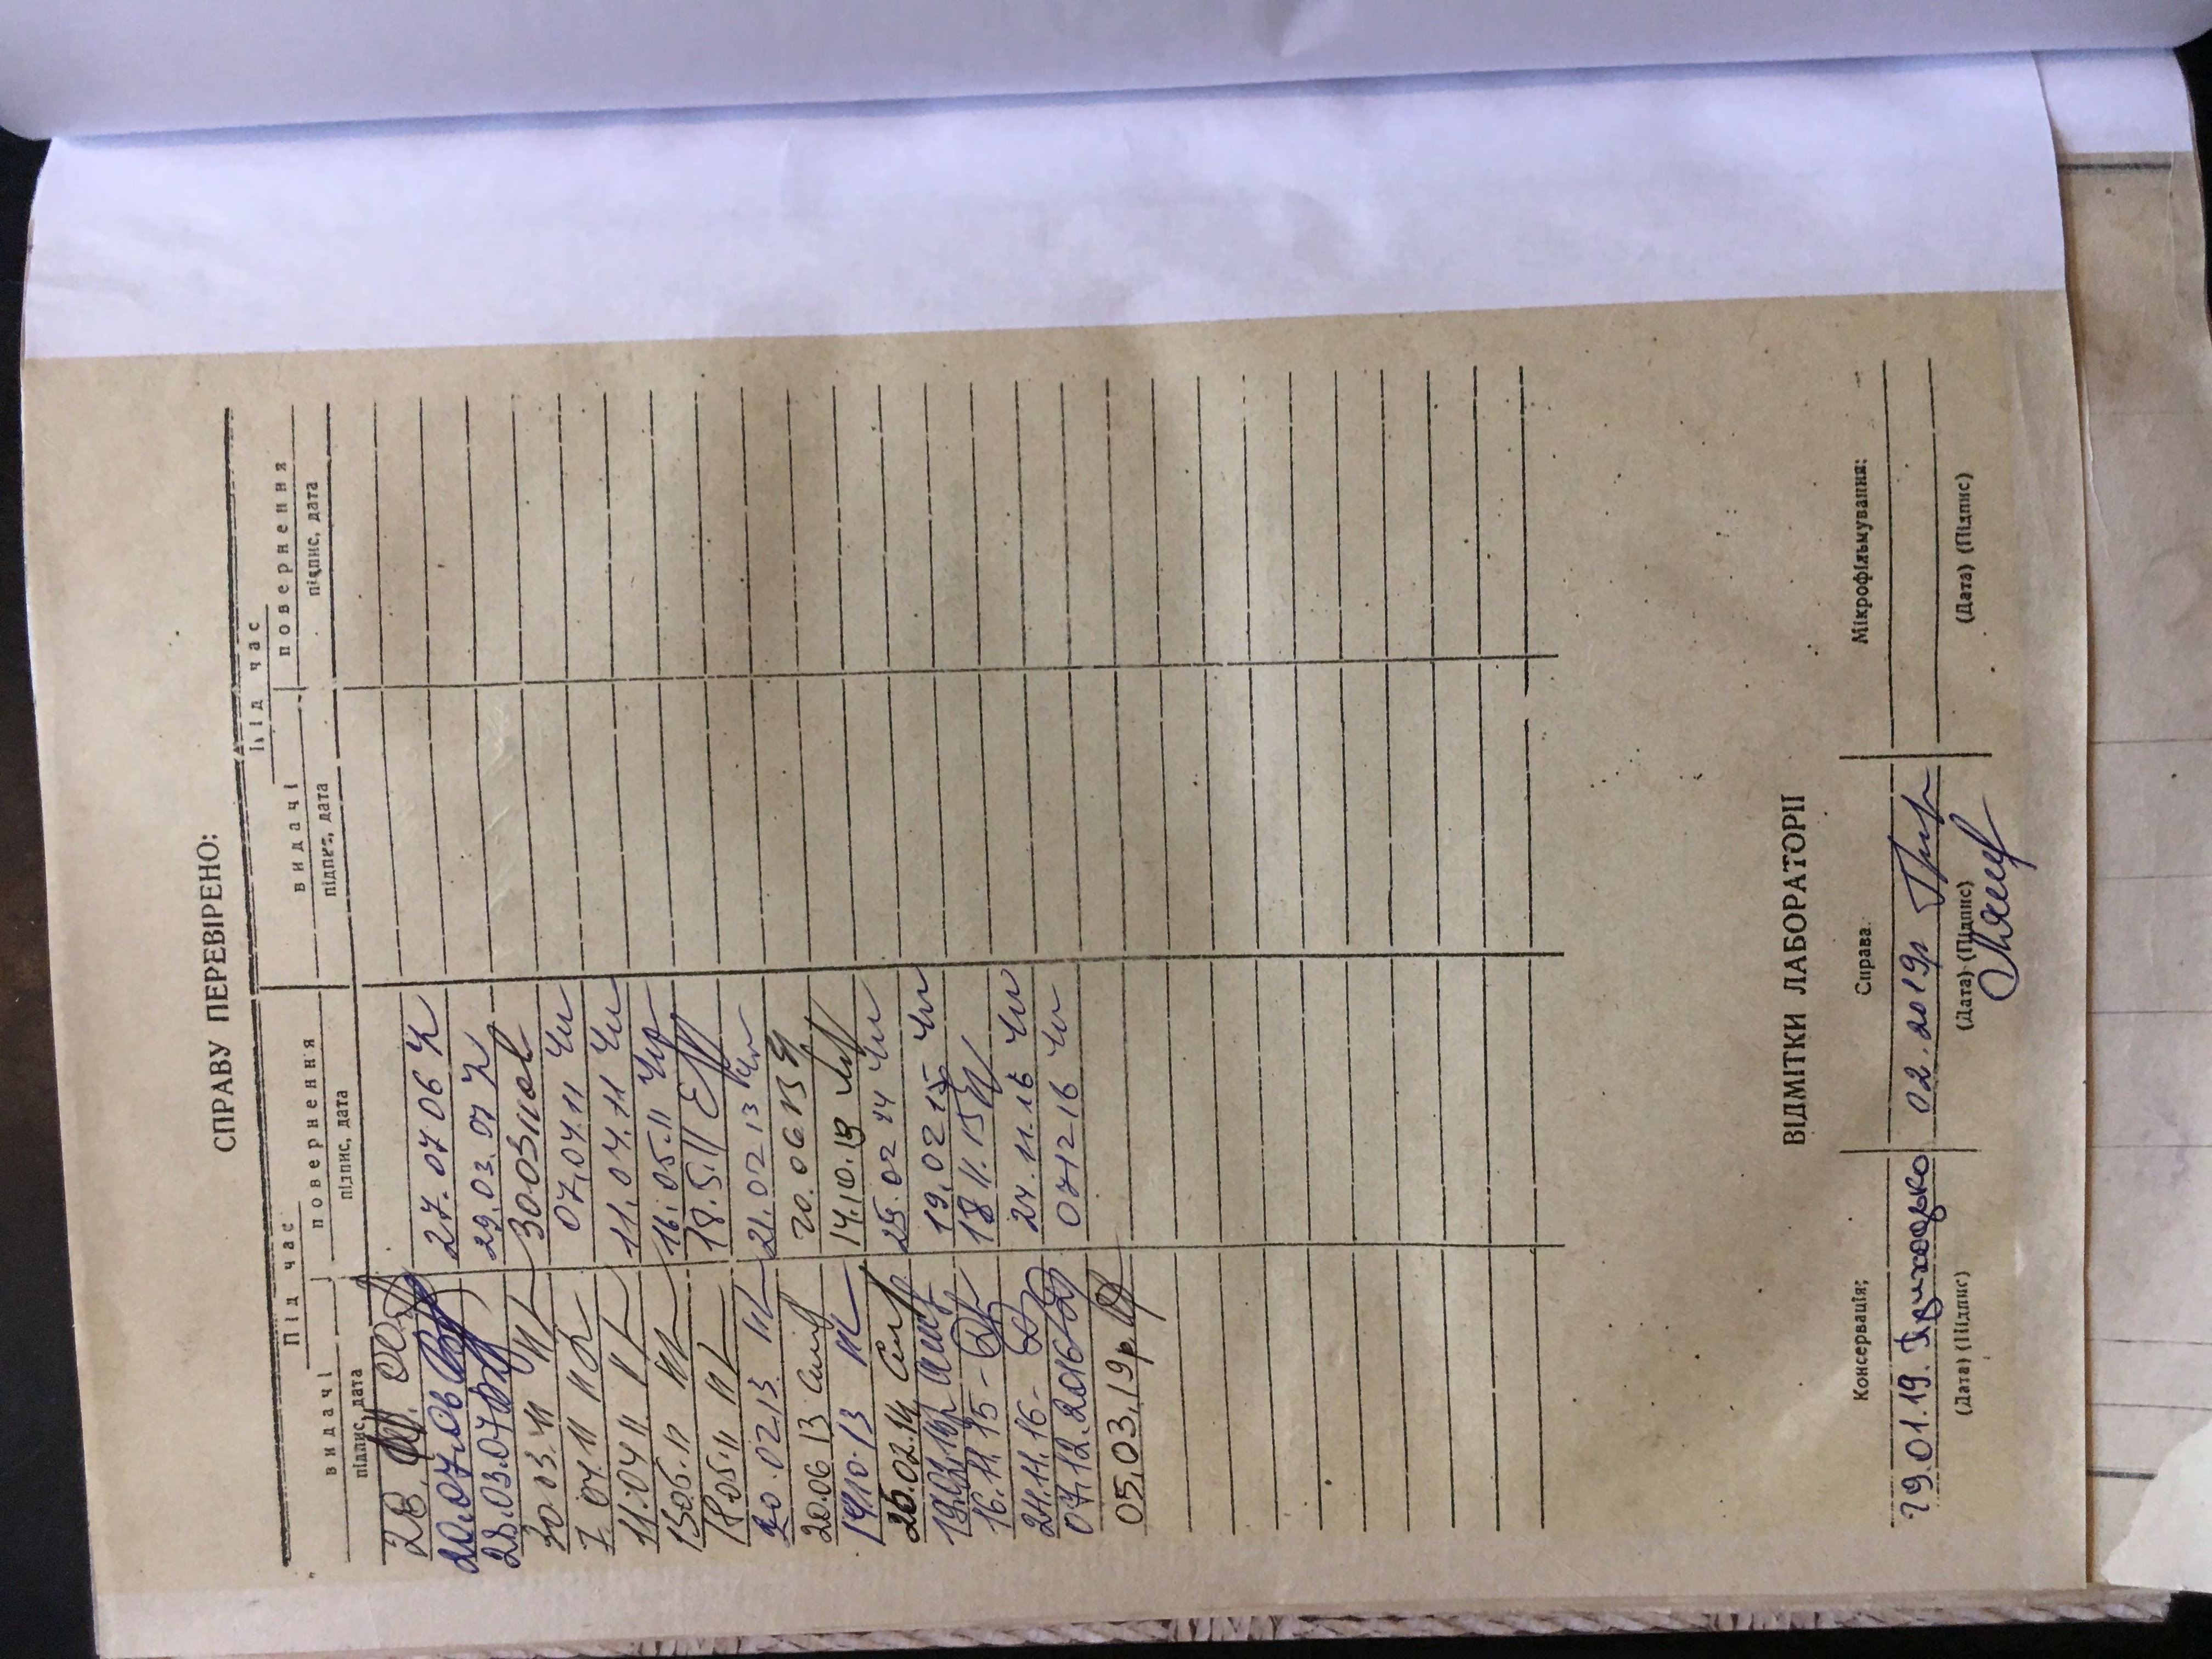 СПРАВУ ПЕРЕВІРЕНО:
Під час Під час
видачі повернення видачі повернення
підпис, дата підпис, дата підпис, дата підпис, дата
28.
20.07.06 27.07 06
28.03.07 29.03.07
30.03.11 30 03 11
7.04.11 07.04.11
11.04 11 11.04.11
15.05.11 16.05.11
18.05.11 18.5.11
20.02.13. 21.02 13
20.06 13 20.06 13
14.10.13 14.10.13
26.02.14 02 14
19.02.15
16.11.15- 18.11.15
24.11.16- 24.11.16
07.12.2016 07 12 16
05.03.19р.
ВІДМІТКИ ЛАБОРАТОРІЇ
Консервація: Справа. Мікрофільмування:
29.01.19. Приходько 02.2019р
(Дата) (Підпис) (Дата) (Підпис) (Дата) (Підпис)